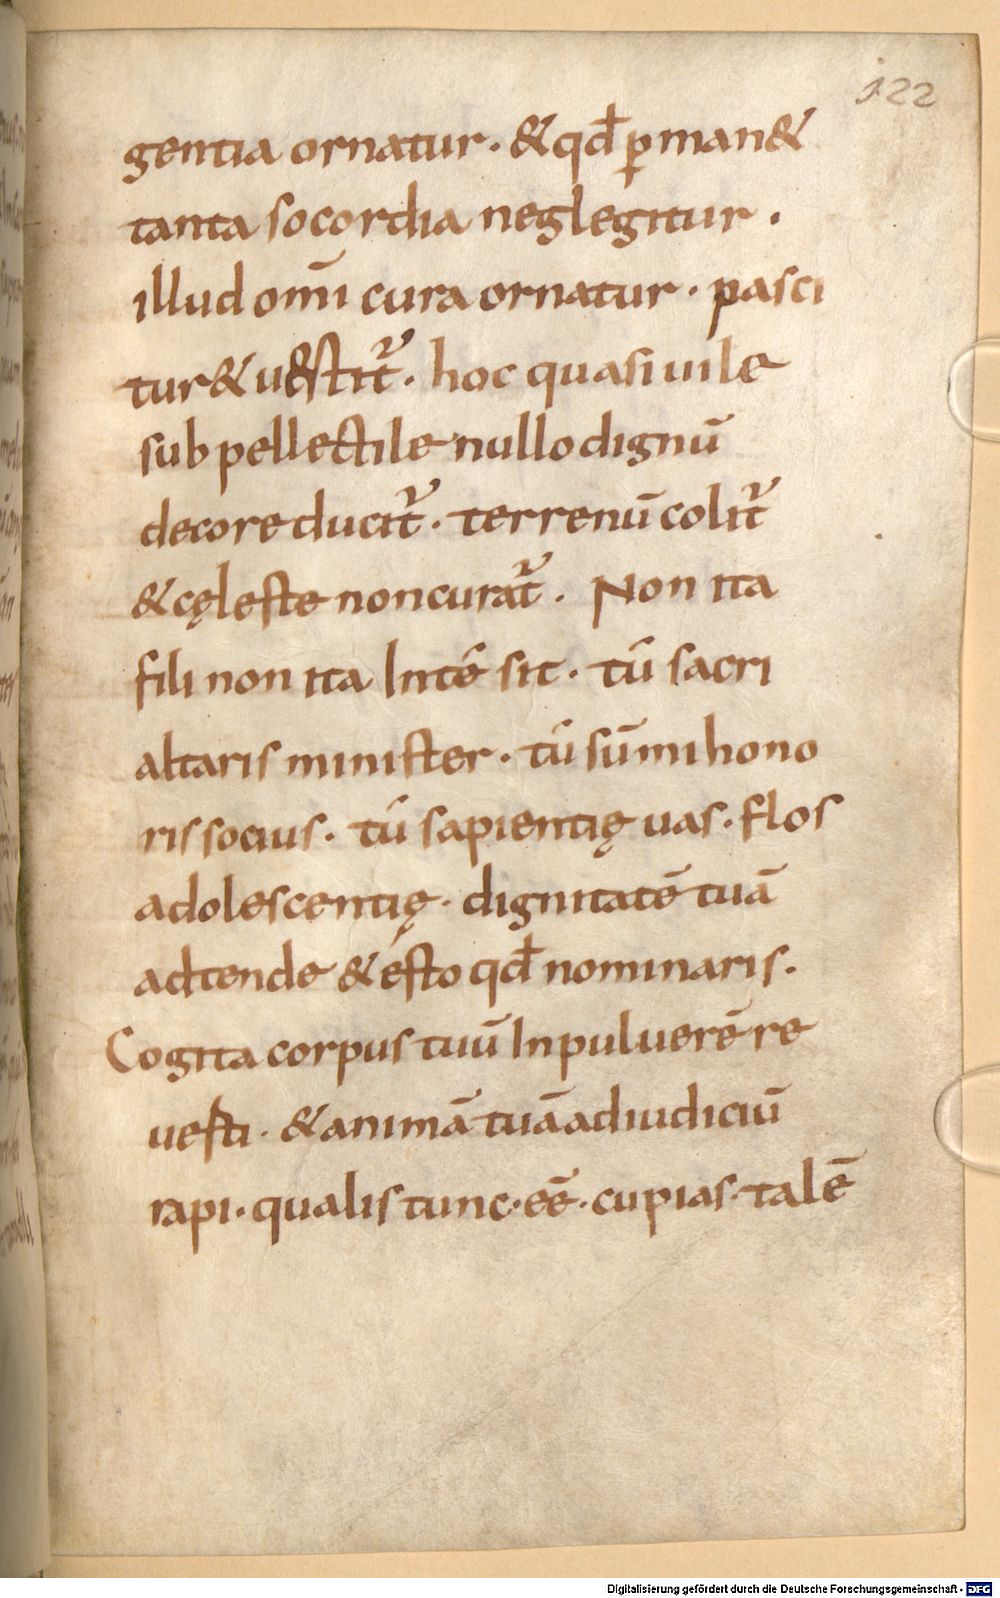 122
gentia ornatur · & qđ ꝑman&
tanta socordia neglegitur ·
illud om̄i cura ornatur · pasci
tur & u&stit᷑ · hoc quasi uile
sub pellectile nullo dignū
decore ducit᷑ · terrenū colit᷑
& cęleste non curat᷑ · Non ita
fili non ita In té sit · tú sacri
altaris minister · tú sūmi hono
ris socius · tú sapientię uas · flos
adolescentię · dignitatē tuā
adtende & ésto qđ nominaris ·
Cogita corpus tuū In puluerē re
uesti · & animā tuā ad iudiciū
rapi · qualis tunc · eē · cupias · talē
Digitalisierung gefördert durch die Deutsche Forschungsgemeinschaft - DFG